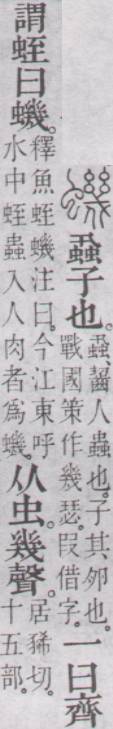 蟣 蝨子也。蝨、齧人蟲也。子、其夘也。戰國策作幾瑟。叚借字。一曰齊
謂蛭曰蟣。釋魚蛭蟣注曰。今江東呼水中蛭蟲入人肉者爲蟣。从虫。幾聲。居狶切。十五部。